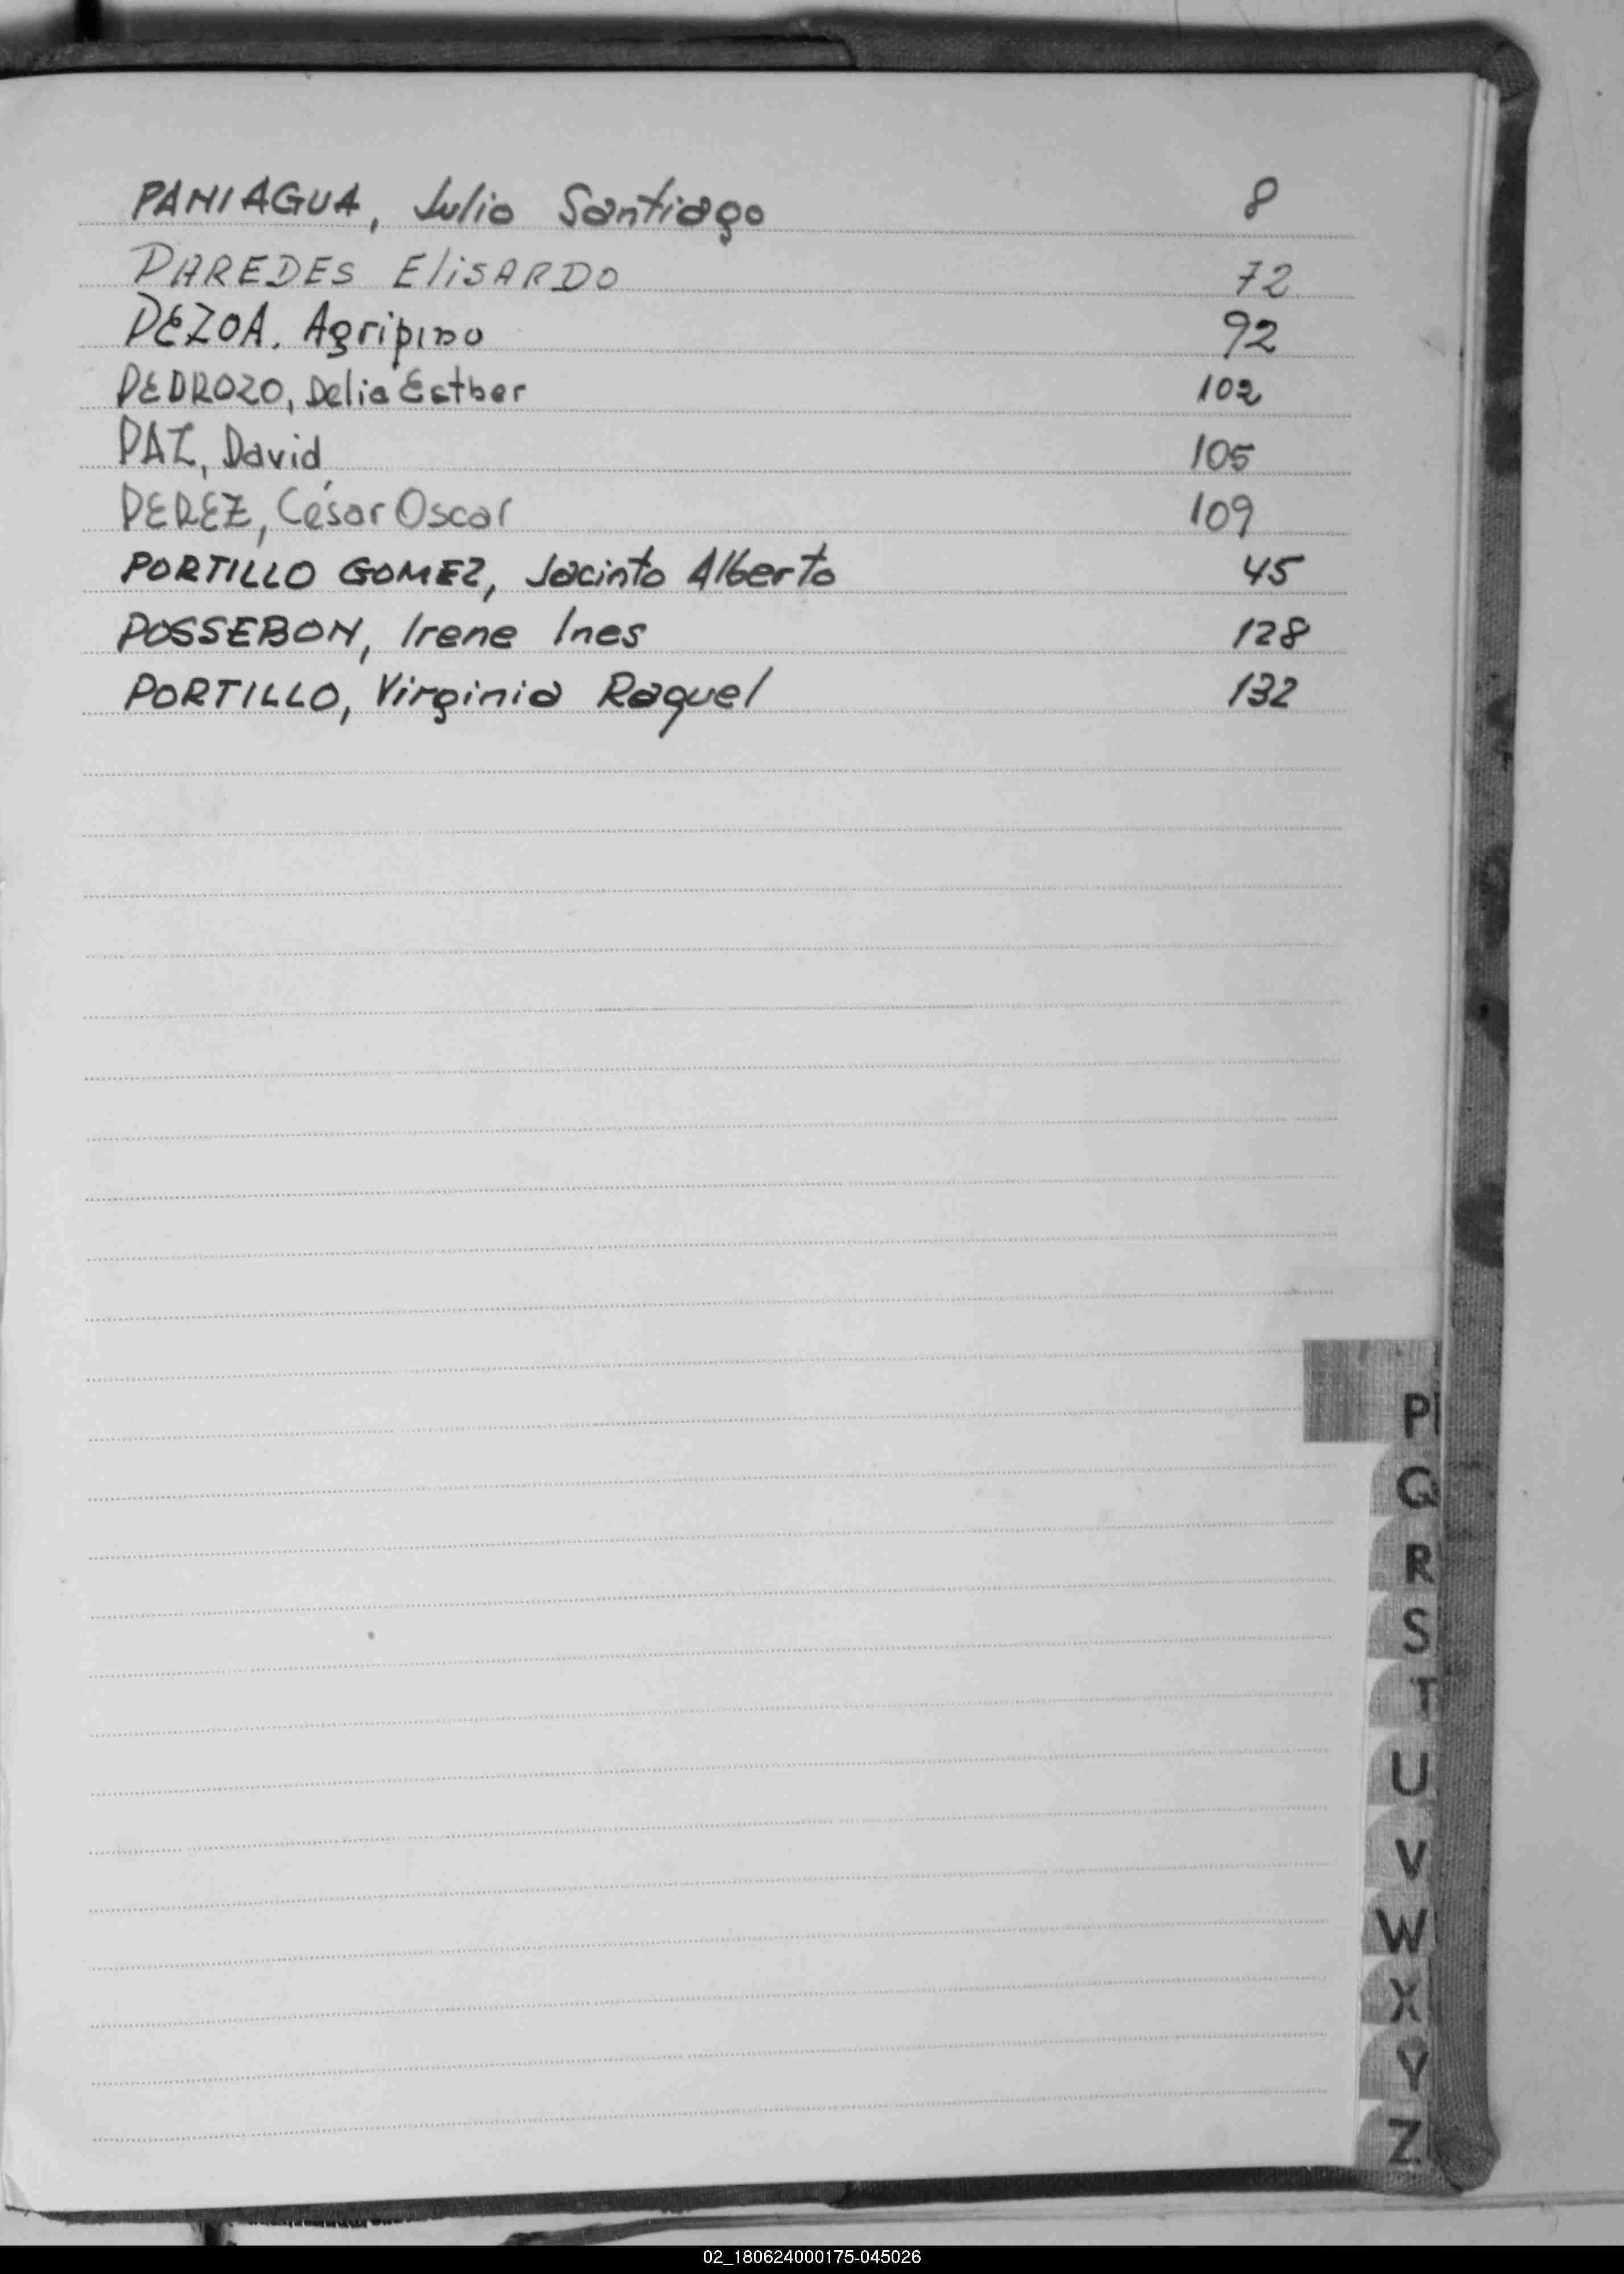 PANIAGUA, Julio Santiago 8
PAREDES ElisARDO 72
PEZOA. Agripino 92
PEDROZO, Delia Esther 102
PAZ, David 105
PEREZ, César Oscar 109
PORTILLO GOMEZ, Jacinto Alberto 45
POSSEBON, Irene Ines 128
PORTILLO, Virginia Raquel 132
P
Q
R
S
T
U
V
W
X
Y
Z
02_180624000175-045026